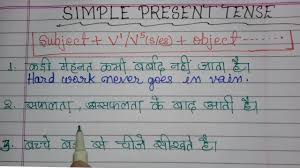 SIMPLE PRESENT TENSE
Subject + V¹/V⁵(s/es) + object ........
1. कड़ी मेहनत कभी बर्बाद नहीं जाता है।
Hard work never goes in vain.
2. सफलता, असफलता के बाद आती है।
3. बच्चे बड़ों से चीजें सीखते हैं।